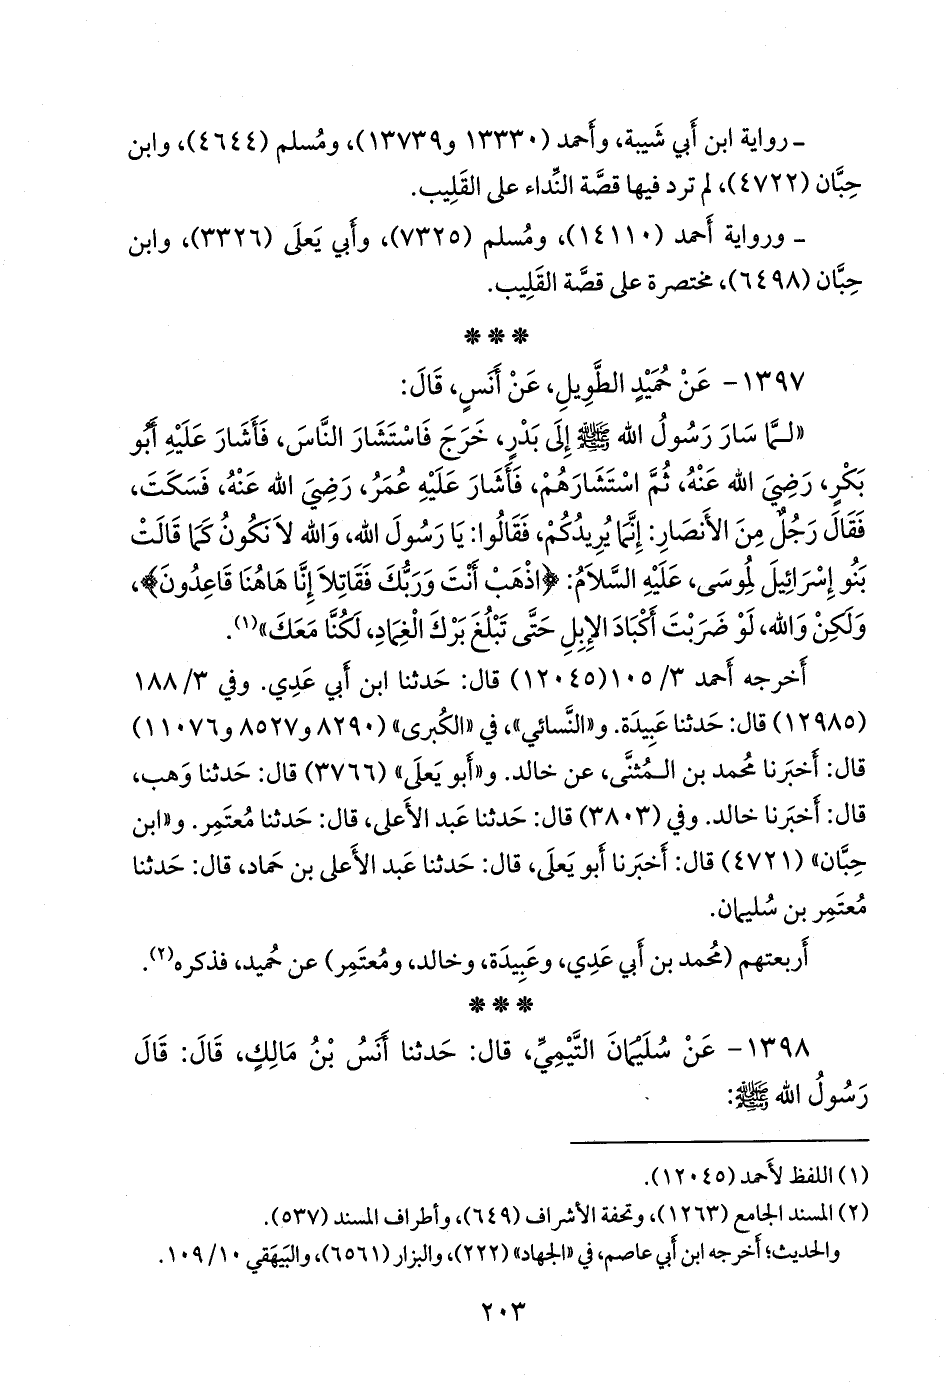 ـ رواية ابن أَبي شَيبة، وأَحمد (١٣٣٣٠ و١٣٧٣٩)، ومُسلم (٤٦٤٤)، وابن
حِبَّان (٤٧٢٢)، لم ترد فيها قصَّة النِّداء على القَلِيب.
ـ ورواية أَحمد (١٤١١٠)، ومُسلم (٧٣٢٥)، وأَبي يَعلَى (٣٣٢٦)، وابن
حِبَّان (٦٤٩٨)، مختصرة على قصَّة القَلِيب.
* * *
١٣٩٧ - عَنْ حُمَيْدٍ الطَّوِيلِ، عَنْ أَنَسٍ، قَالَ:
«لَـمَّا سَارَ رَسُولُ الله ﷺ إِلَى بَدْرٍ، خَرَجَ فَاسْتَشَارَ النَّاسَ، فَأَشَارَ عَلَيْهِ أَبُو
بَكْرٍ، رَضِيَ الله عَنْهُ، ثُمَّ اسْتَشَارَهُمْ، فَأَشَارَ عَلَيْهِ عُمَرُ، رَضِيَ الله عَنْهُ، فَسَكَتَ،
فَقَالَ رَجُلٌ مِنَ الأَنْصَارِ: إِنَّمَا يُرِيدُكُمْ، فَقَالُوا: يَا رَسُولَ الله، وَالله لاَ نَكُونُ كَمَا قَالَتْ
بَنُو إِسْرَائِيلَ لِمُوسَى، عَلَيْهِ السَّلاَمُ: ﴿اذْهَبْ أَنْتَ وَرَبُّكَ فَقَاتِلاَ إِنَّا هَاهُنَا قَاعِدُونَ﴾،
وَلَكِنْ وَالله، لَوْ ضَرَبْتَ أَكْبَادَ الإِبِلِ حَتَّى تَبْلُغَ بَرْكَ الْغِمَادِ، لَكُنَّا مَعَكَ»(١).
أَخرجه أَحمد ٣/ ١٠٥ (١٢٠٤٥) قال: حَدثنا ابن أَبي عَدِي. وفي ٣/ ١٨٨
(١٢٩٨٥) قال: حَدثنا عَبِيدَة. و«النَّسائي»، في «الكُبرى» (٨٢٩٠ و٨٥٢٧ و١١٠٧٦)
قال: أَخبَرنا مُحمد بن الـمُثنَّى، عن خالد. و«أَبو يَعلَى» (٣٧٦٦) قال: حَدثنا وَهب،
قال: أَخبَرنا خالد. وفي (٣٨٠٣) قال: حَدثنا عَبد الأَعلى، قال: حَدثنا مُعتَمِر. و«ابن
حِبَّان» (٤٧٢١) قال: أَخبَرنا أَبو يَعلَى، قال: حَدثنا عَبد الأَعلى بن حَماد، قال: حَدثنا
مُعتَمِر بن سُليمان.
أَربعتهم (مُحمد بن أَبي عَدِي، وعَبِيدَة، وخالد، ومُعتَمِر) عن حُميد، فذكره(٢).
* * *
١٣٩٨ - عَنْ سُلَيْمَانَ التَّيْمِيِّ، قال: حَدثنا أَنَسُ بْنُ مَالِكٍ، قَالَ: قَالَ
رَسُولُ الله ﷺ:
(١) اللفظ لأَحمد (١٢٠٤٥).
(٢) المسند الجامع (١٢٦٣)، وتحفة الأشراف (٦٤٩)، وأطراف المسند (٥٣٧).
والحديث؛ أَخرجه ابن أبي عاصم، في «الجهاد» (٢٢٢)، والبزار (٦٥٦١)، والبَيهَقي ١٠/ ١٠٩.
٢٠٣